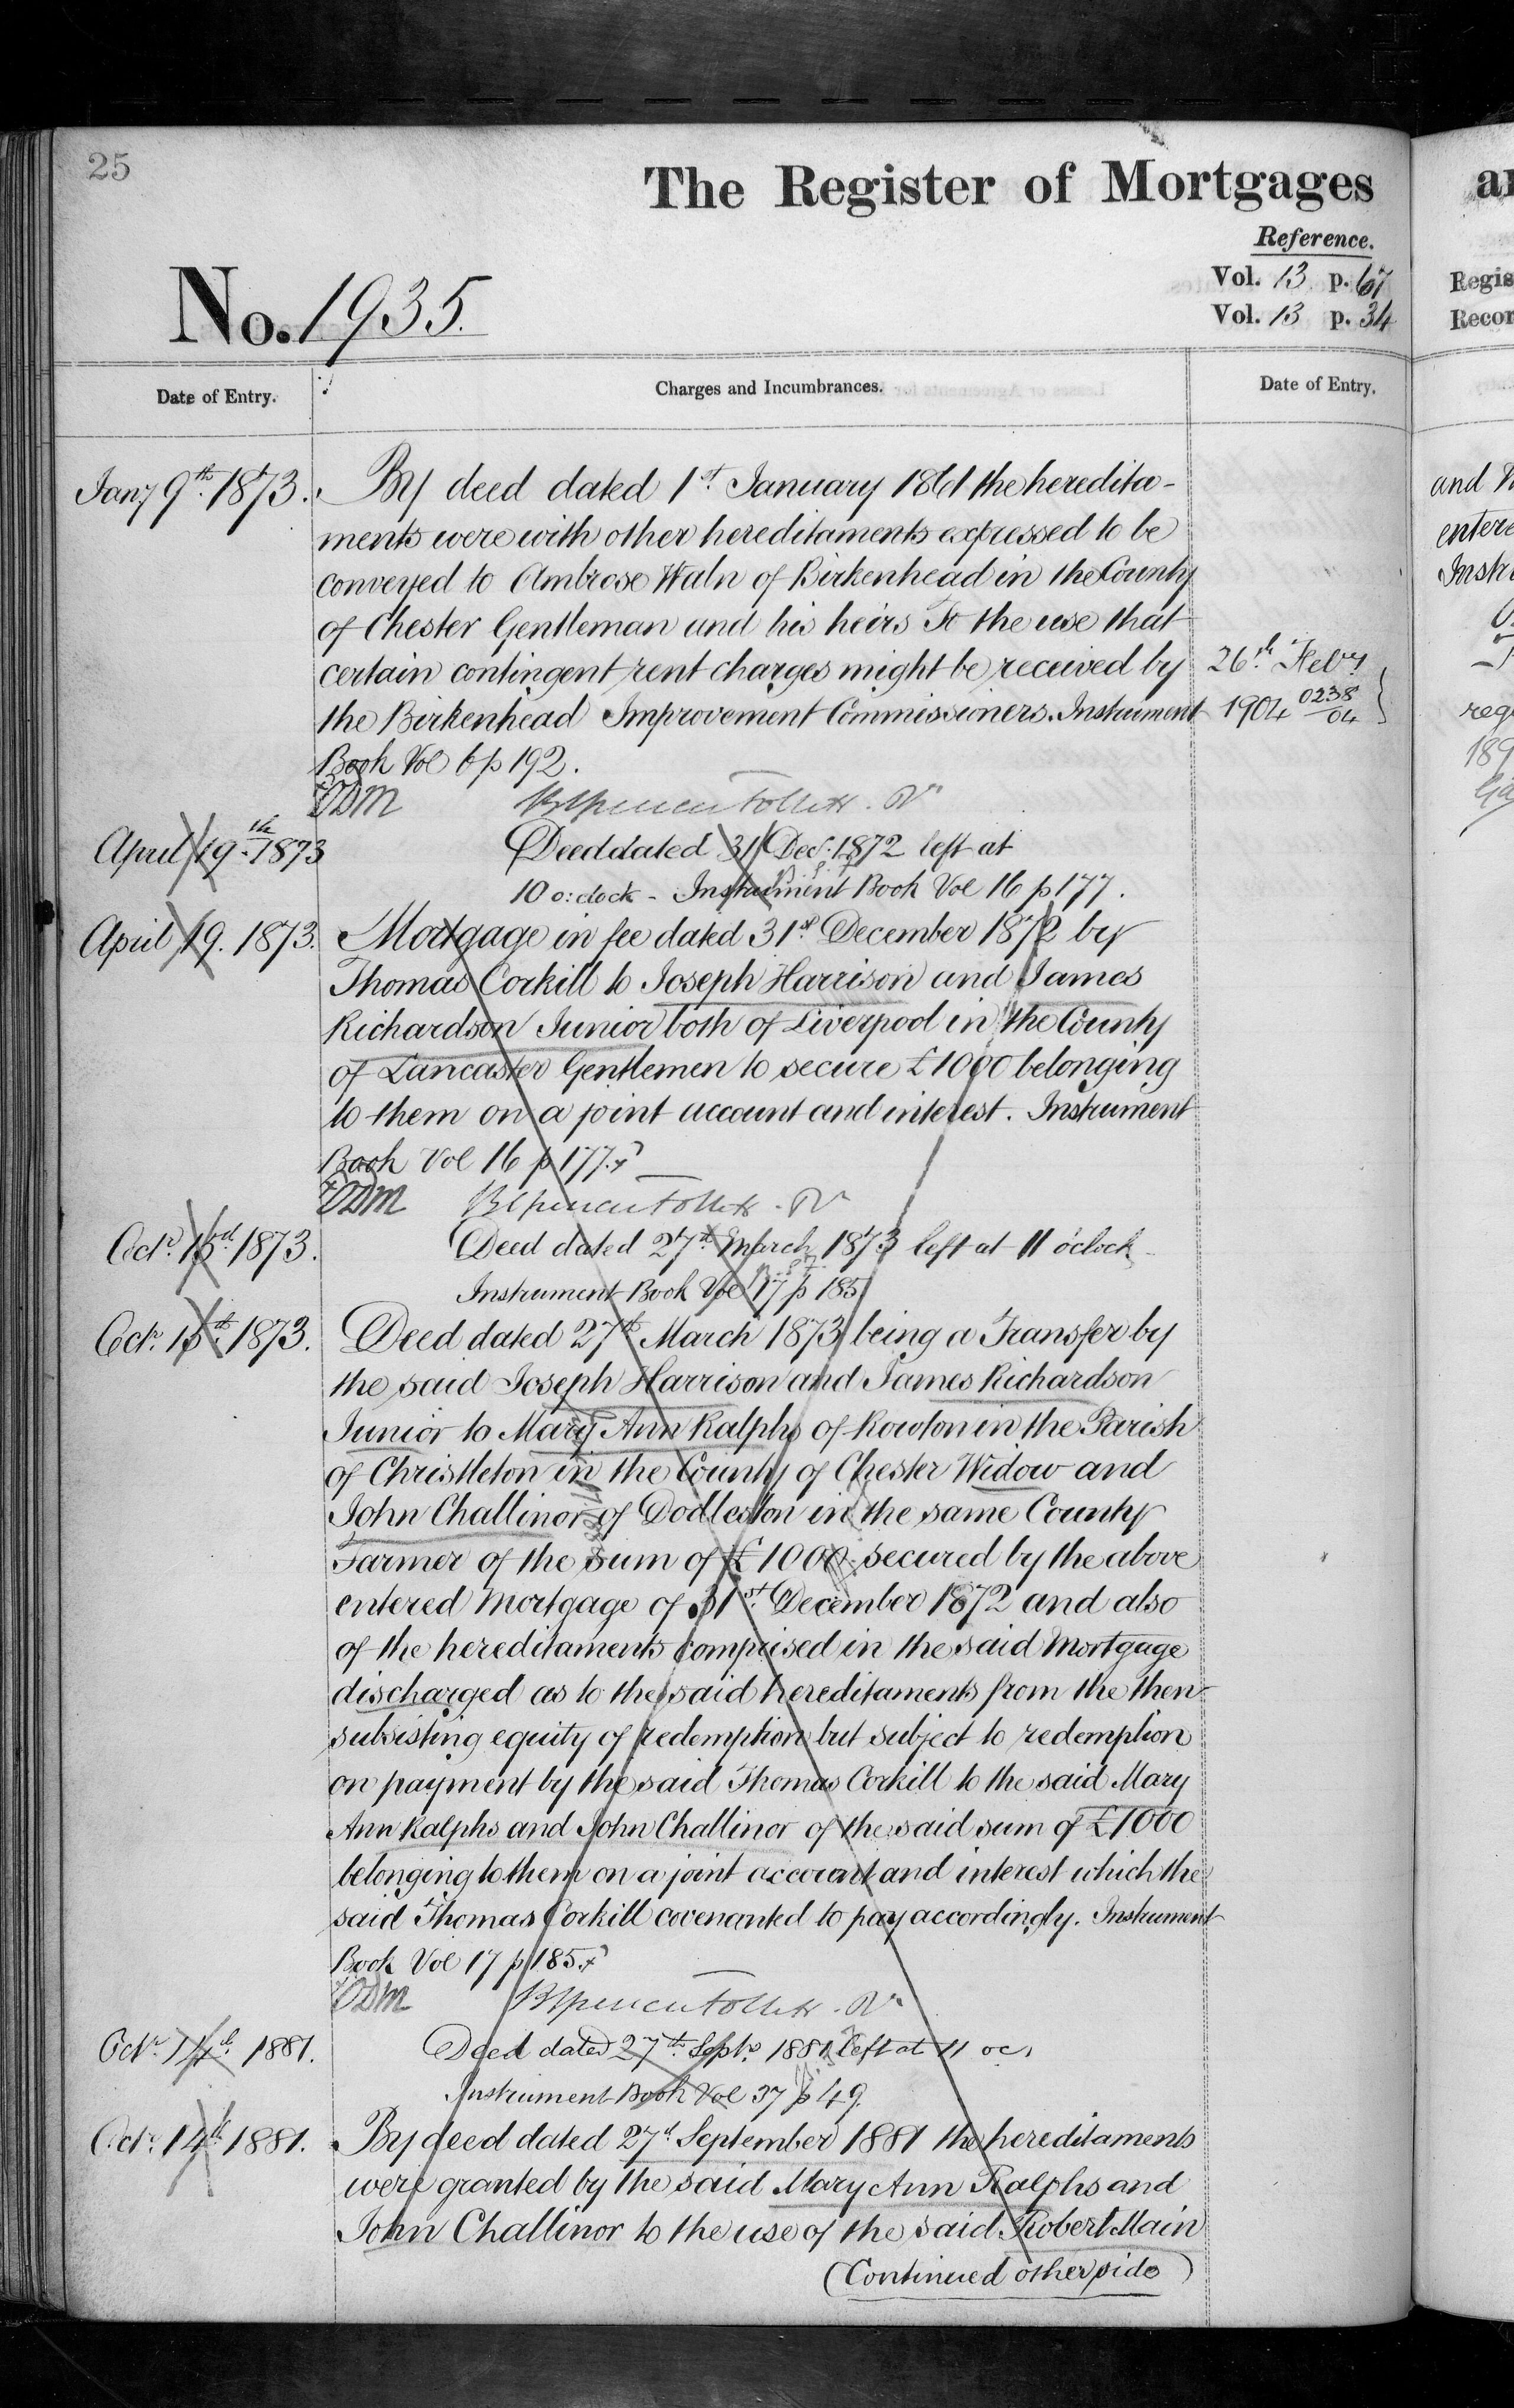 25
The Register of Mortgages
Reference.
Vol. 13 p. 67
Vol. 13 p. 34
No. 1935.
Date of Entry.
Charges and Incumbrances.
Date of Entry.
Jany 9th 1873.
By deed dated 1st January 1861 the heredita-
ments were with other hereditaments expressed to be
conveyed to Ambrose Waln of Birkenhead in the County
of Chester Gentleman and his heirs To the use that
certain contingent rent charges might be received by
the Birkenhead Improvement Commissioners. Instrument
Book Vol 6 p 192.
26th Feby
1904 0238/04
ODM
April 19th 1873
Deed dated 31 Decr. 1872 left at
10 o:clock - Instrument Book Vol 16 p 177.
April 19. 1873.
Mortgage in fee dated 31st December 1872 by
Thomas Corkill to Joseph Harrison and James
Richardson Junior both of Liverpool in the County
of Lancaster Gentlemen to secure £1000 belonging
to them on a joint account and interest. Instrument
Book Vol 16 p 177.
ODM
Octr. 1873.
Deed dated 27th March 1873 left at 11 o'clock
Instrument Book Vol 17 p 185
Octr. 1873.
Deed dated 27th March 1873 being a Transfer by
the said Joseph Harrison and James Richardson
Junior to Mary Ann Ralphs of Rowton in the Parish
of Christleton in the County of Chester Widow and
John Challinor of Dodleston in the same County
Farmer of the sum of £1000 secured by the above
entered Mortgage of 31st December 1872 and also
of the hereditaments comprised in the said Mortgage
discharged as to the said hereditaments from the then
subsisting equity of redemption but subject to redemption
on payment by the said Thomas Corkill to the said Mary
Ann Ralphs and John Challinor of the said sum of £1000
belonging to them on a joint account and interest which the
said Thomas Corkill covenanted to pay accordingly. Instrument
Book Vol 17 p 185.
ODM
Octr. 14th 1881.
Deed dated 27th Septr. 1881 left at 11 oc.
Instrument Book Vol 37 p 49.
Octr. 14th 1881.
By deed dated 27th September 1881 the hereditaments
were granted by the said Mary Ann Ralphs and
John Challinor to the use of the said Robert Main
(Continued other side)
Regis
Recor
and
entere
Instr
189